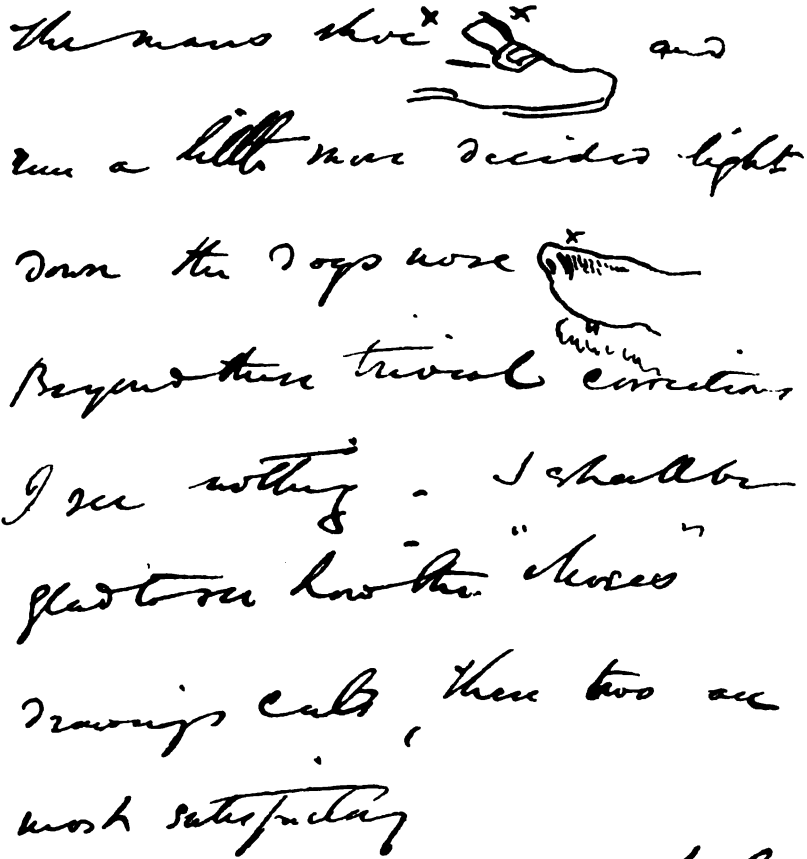 the mans shoe x x and
run a little more decided light
down the dogs nose x
Beyond these trivial corrections
I see nothing - I shall be
glad to see how the
drawings cuts, these two are
most satisfactory